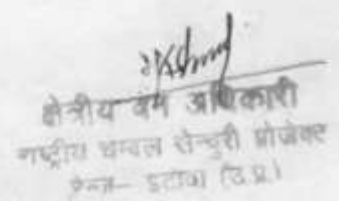 क्षेत्रीय वन अधिकारी
राष्ट्रीय चम्बल सेन्चुरी प्रोजेक्ट
रेन्ज- इटावा (उ.प्र.)